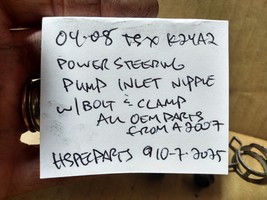 04-08 TSX K24A2
POWER STEERING
PUMP INLET NIPPLE
W/BOLT & CLAMP
ALL OEM PARTS
FROM A 2007
HSPECPARTS 910-7-2025